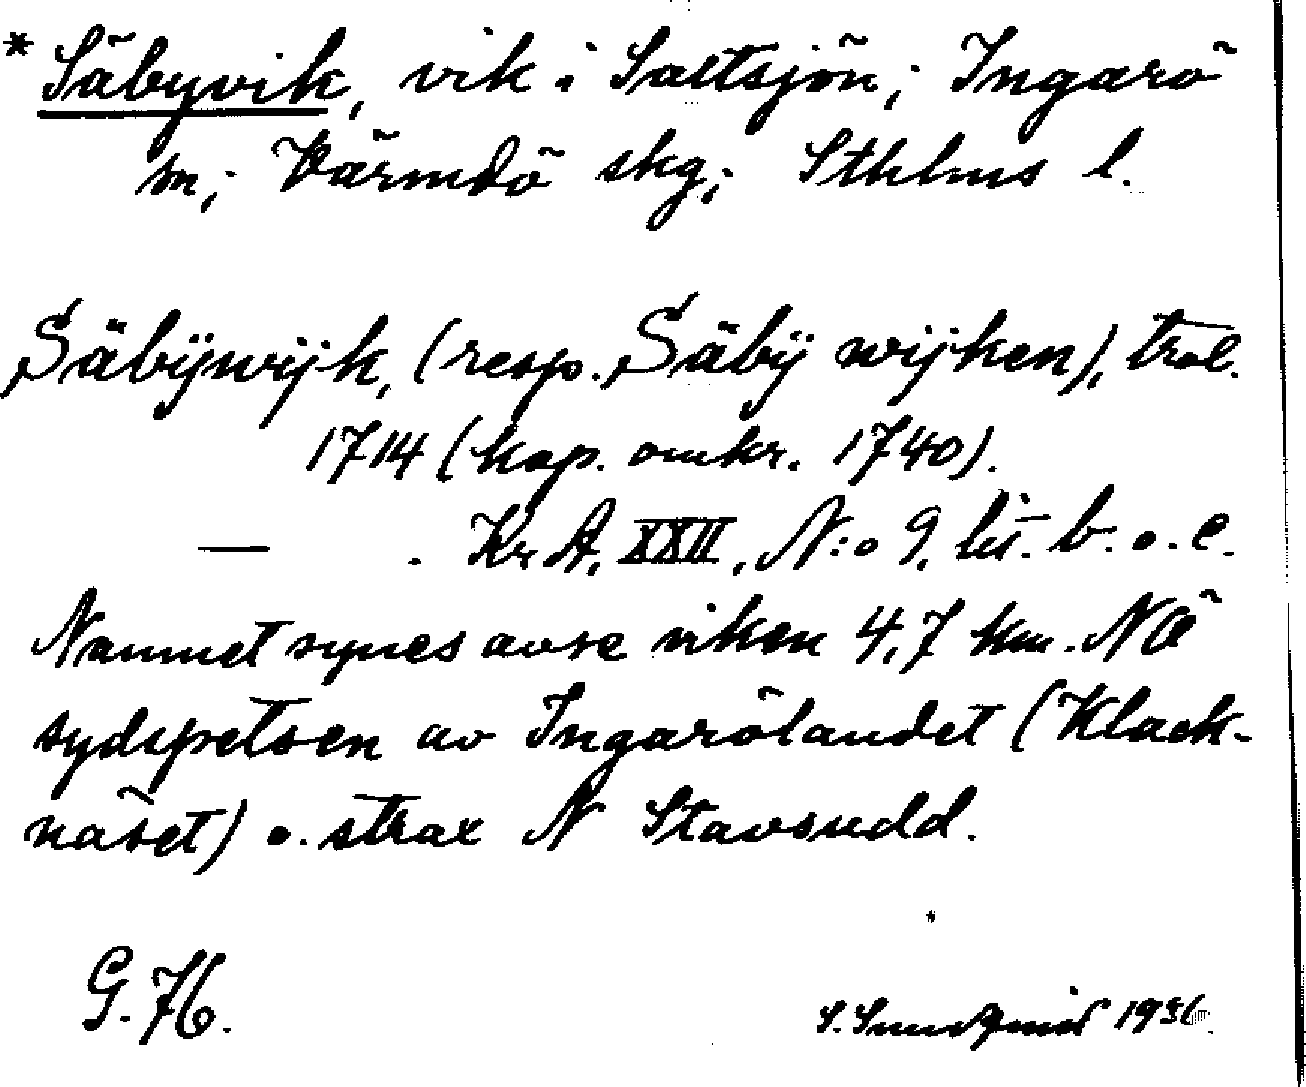 * Säbyvik, vik i Saltsjön; Ingarö
sn; Värmdö skg; Sthlms l.
Säbÿwijk, (resp. Säbÿ wijken), trol.
1714 (kop. omkr. 1740).
— . Kr A, XXII, N:o 9, lit. b. o. c.
Namnet synes avse viken 4,7 km. NÖ
sydspetsen av Ingarölandet (Klack-
näset) o. strax N Stavsudd.
G. H.
S. 1936